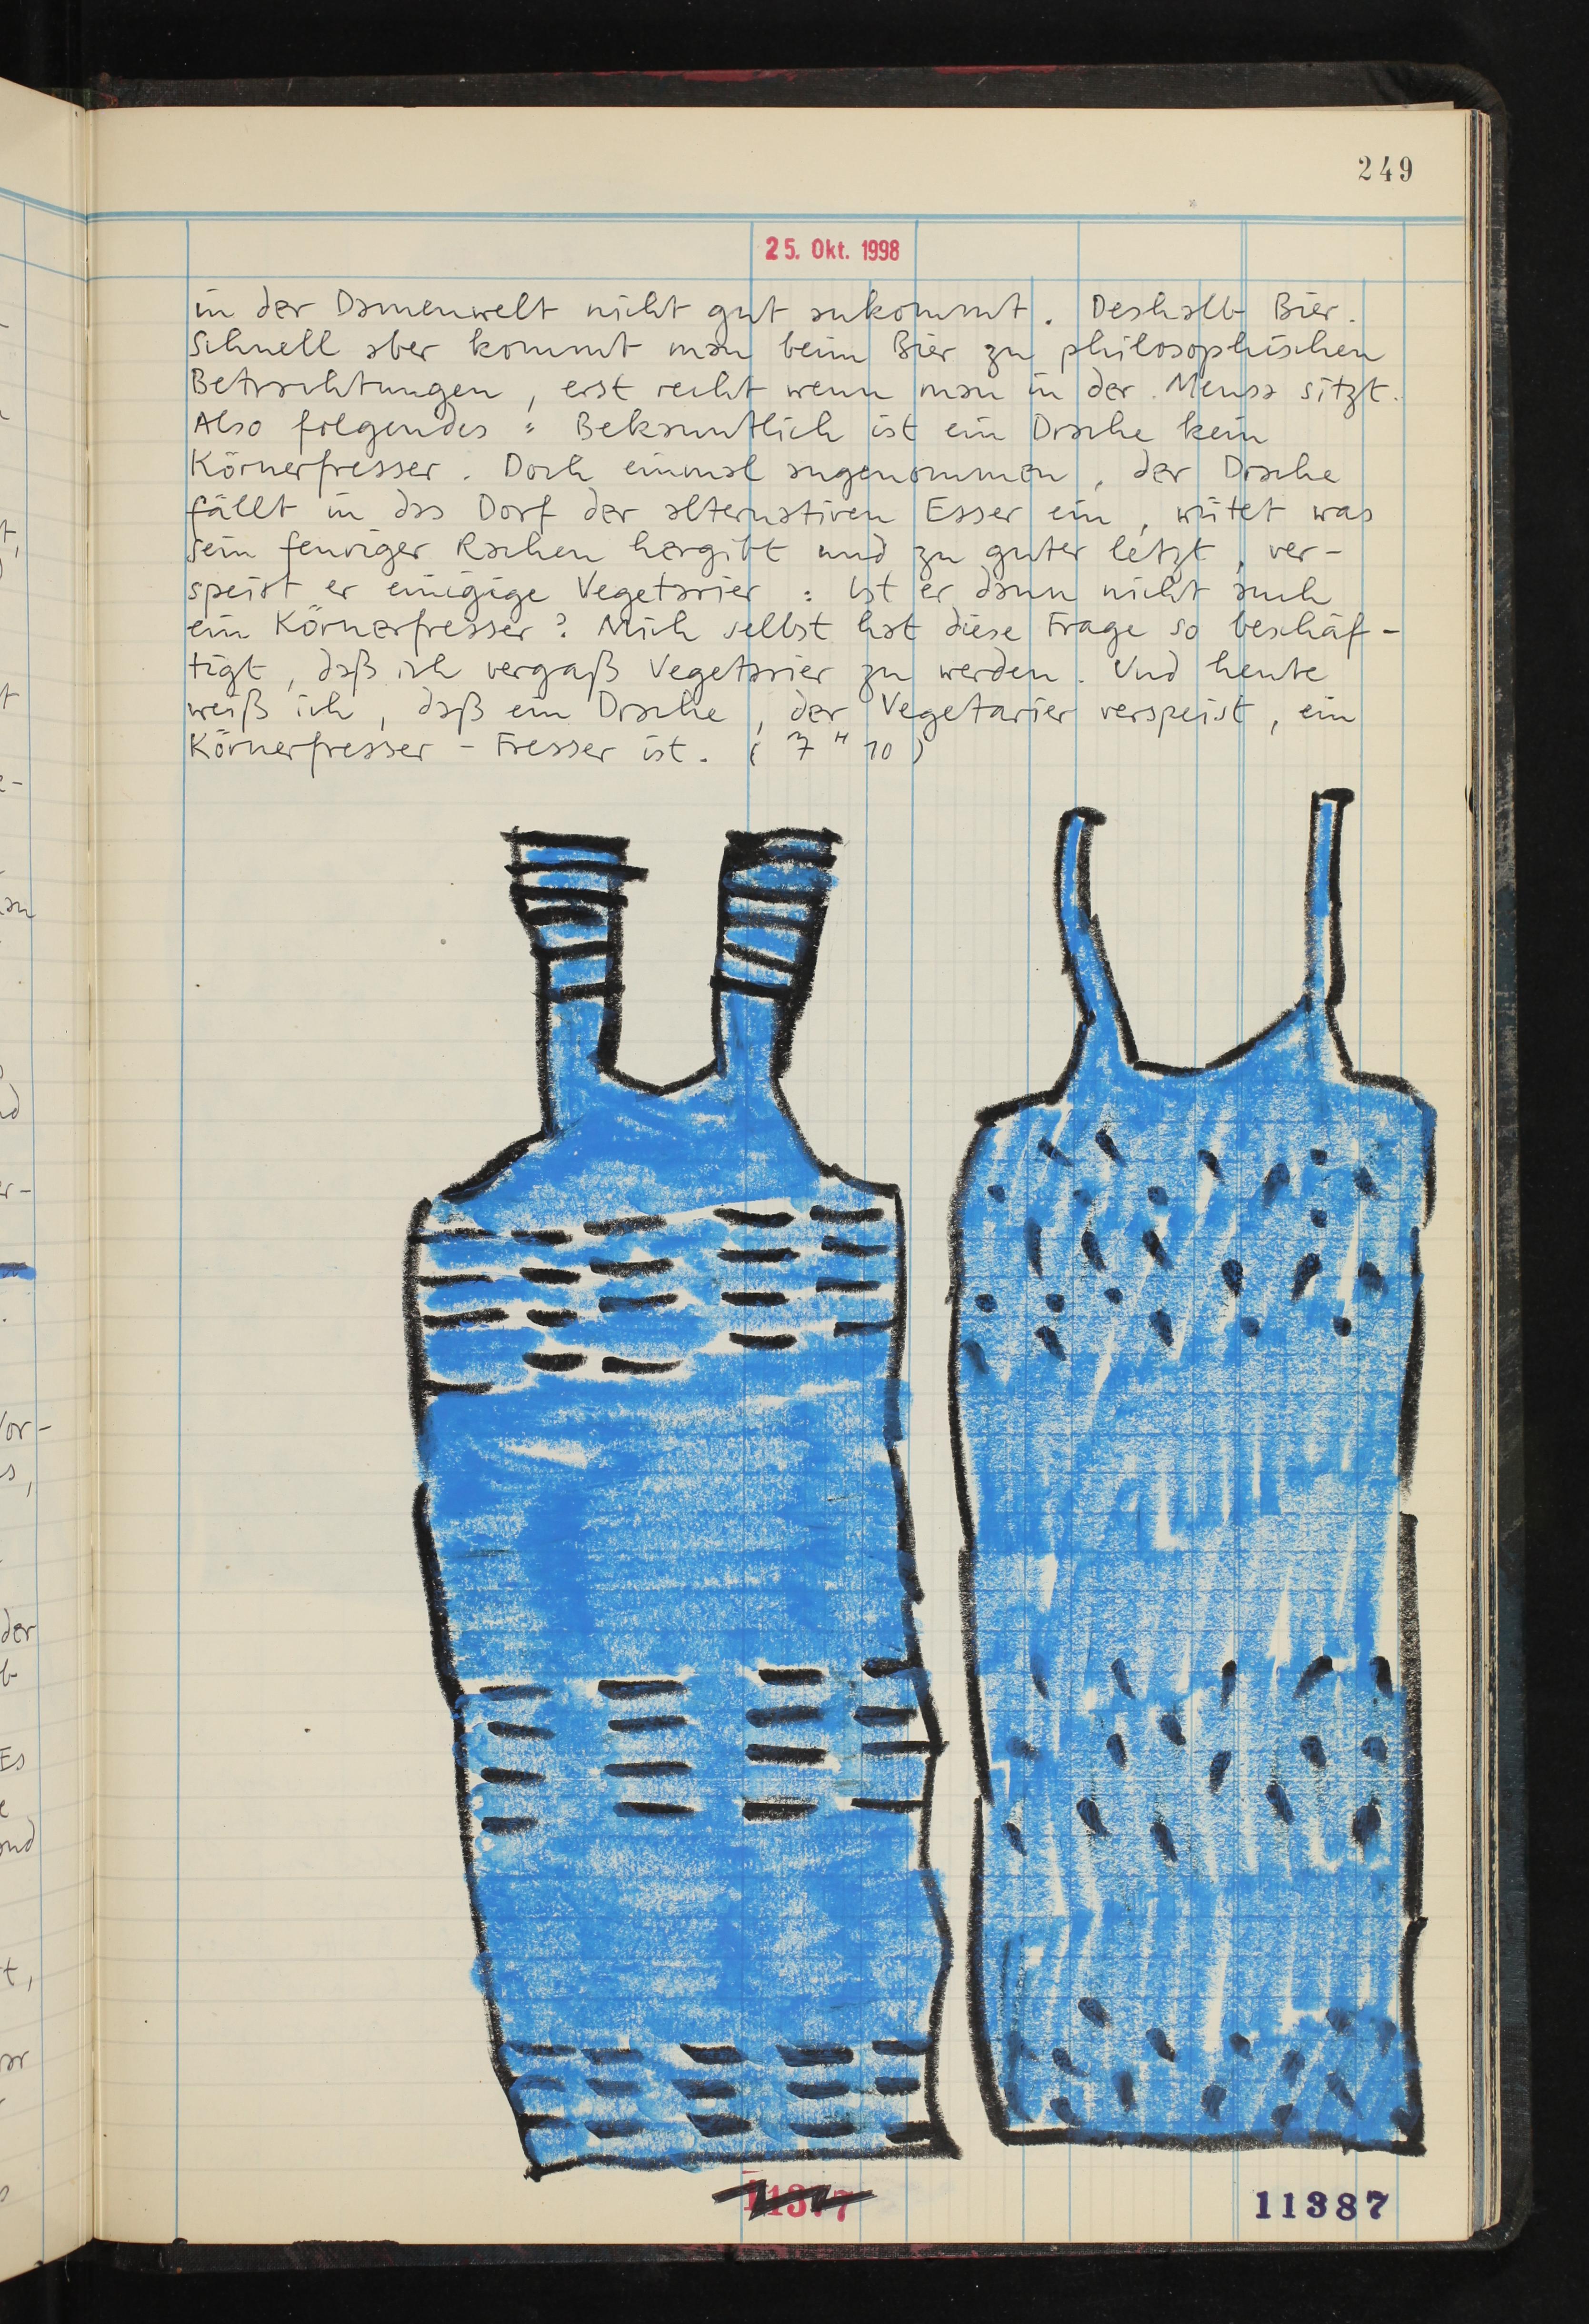 249
25. Okt. 1998
in der Damenwelt nicht gut ankommt. Deshalb Bier.
Schnell aber kommt man beim Bier zu philosophischen
Betrachtungen, erst recht wenn man in der Mensa sitzt.
Also folgendes: Bekanntlich ist ein Drache kein
Körnerfresser. Doch einmal angenommen, der Drache
fällt in das Dorf der alternativen Esser ein, wütet was
sein feuriger Rachen hergibt und zu guter letzt, ver-
speist er einigige Vegetarier: Ist er dann nicht auch
ein Körnerfresser? Mich selbst hat diese Frage so beschäf-
tigt, daß ich vergaß Vegetarier zu werden. Und heute
weiß ich, daß ein Drache, der Vegetarier verspeist, ein
Körnerfresser-Fresser ist. (7" 10)
11377
11387